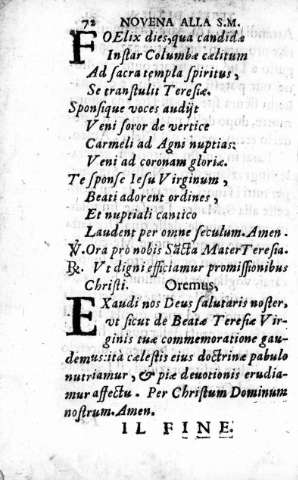 72 NOVENA ALLA S.M.
FOElix dies, qua candidæ
Instar Columbæ cælitum
Ad sacra templa spiritus,
Se transtulit Teresiæ.
Sponsique voces audijt
Veni soror de vertice
Carmeli ad Agni nuptias:
Veni ad coronam gloriæ.
Te sponse Iesu Virginum,
Beati adorent ordines,
Et nuptiali cantico
Laudent per omne seculum. Amen.
℣. Ora prò nobis Sãcta Mater Teresia.
℟. Vt digni efficiamur promissionibus
Christi. Oremus,
EXaudi nos Deus salutaris noster,
vt sicut de Beatæ Teresiæ Vir-
ginis tuæ commemoratione gau-
demus: ità cælestis eius doctrinæ pabulo
nutriamur, & piæ deuotionis erudia-
mur affectu. Per Christum Dominum
nostrum. Amen.
IL FINE.